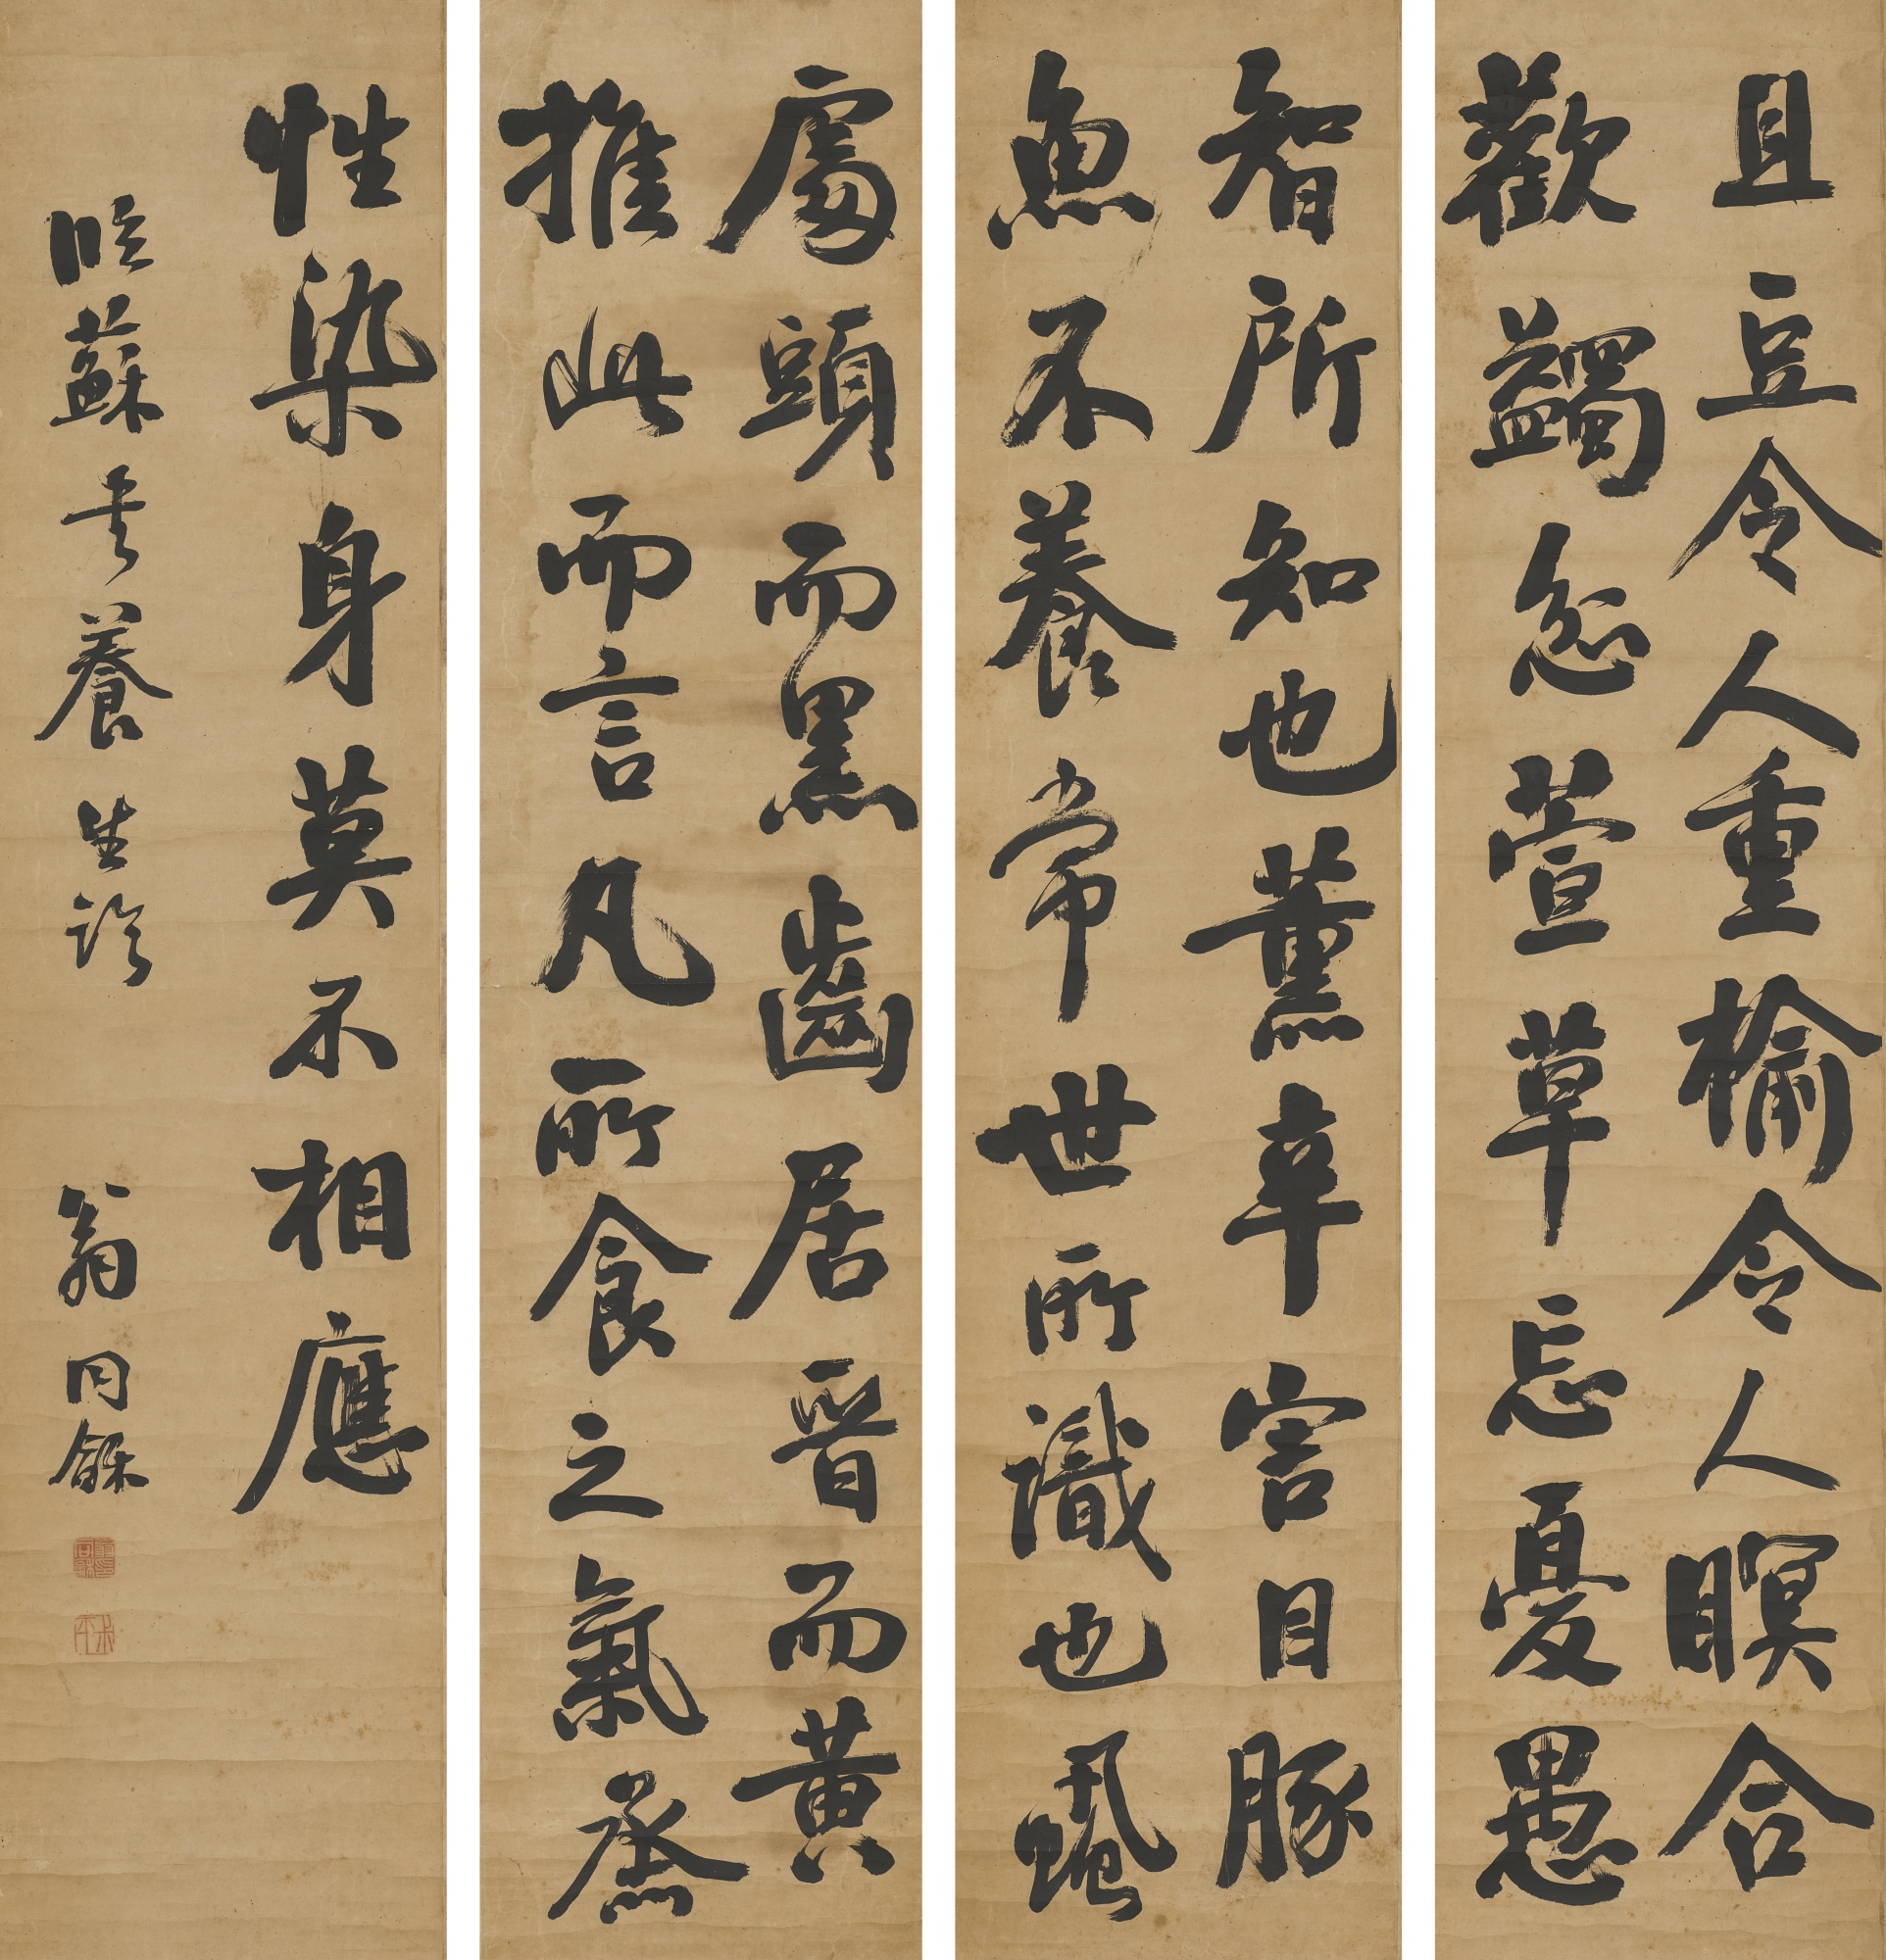 且豆令人重榆令人瞑合
歡蠲忿萱草忘憂愚
智所知也薰辛害目豚
魚不養常世所識也蝨
處頭而黑齒居晉而黃
推此而言凡所食之氣烝
性染身莫不相應
臨蘇書養生論 翁同龢
叔平